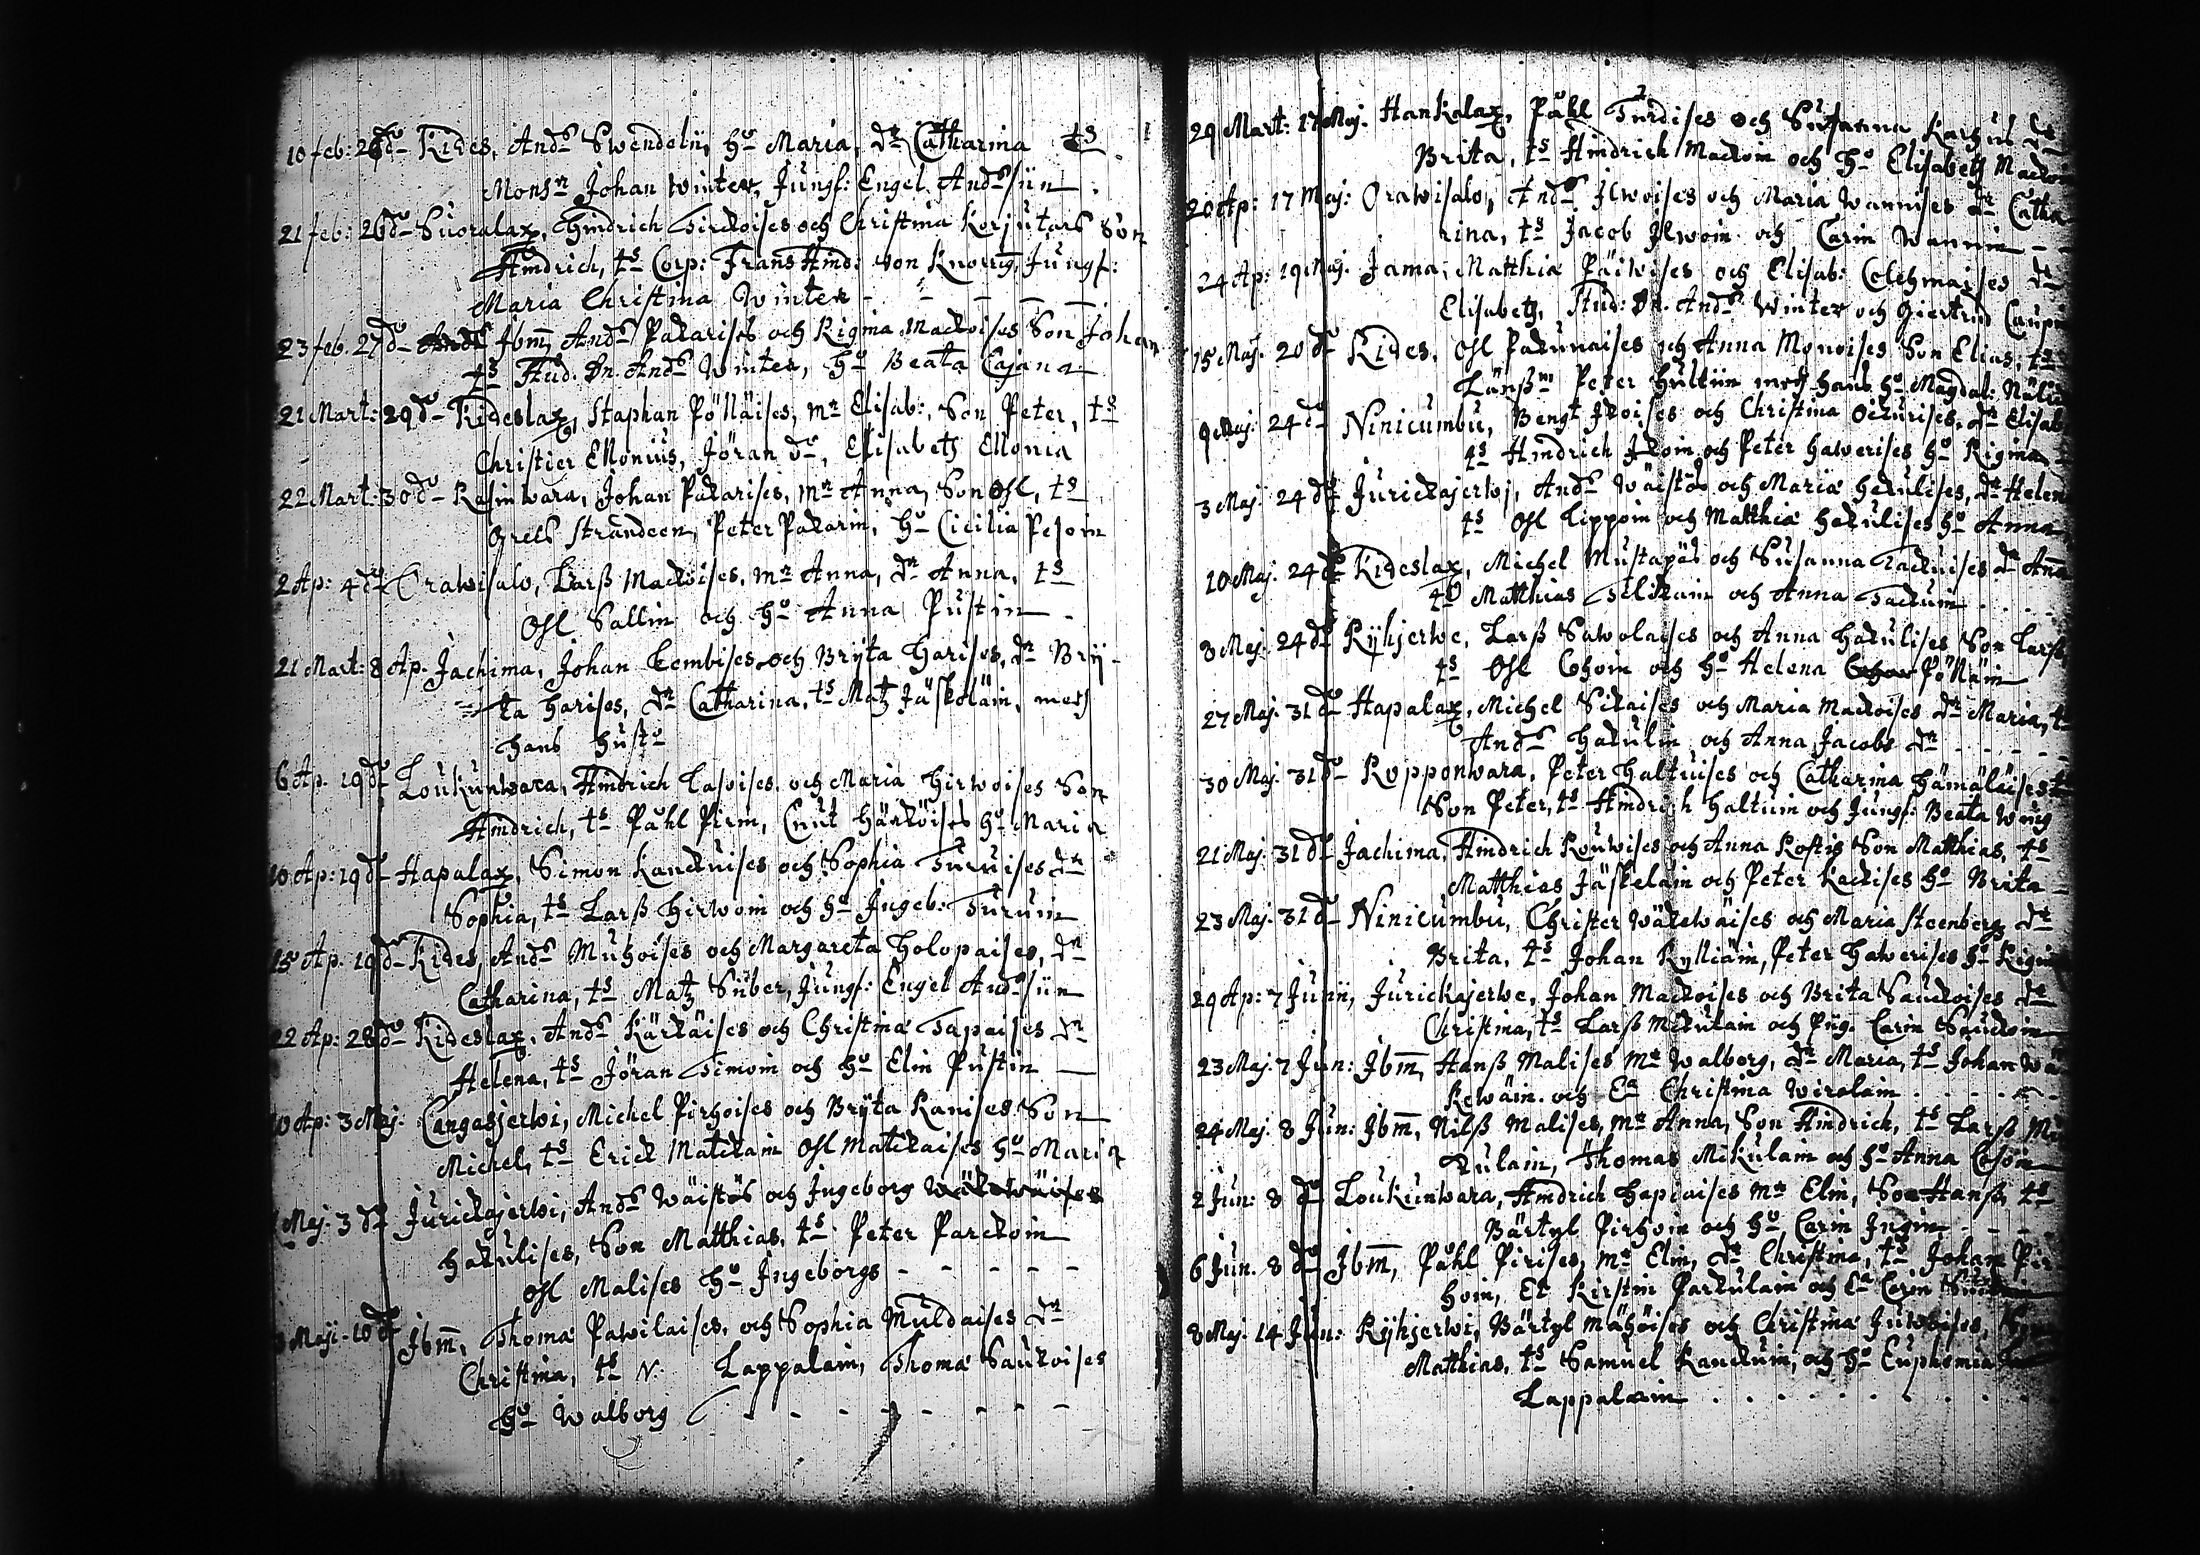 10 feb: 26 do Kides, Ands Swendelii, ho Maria, dr Catharina ts
Monsr Johan Winter, Jungf: Engel Andssiin
21 feb: 26 do Suoralax, Hindrich Tirckoises och Christina Korjutars Son
Hindrich, ts Corp: Frans Hind: von Knorrig, Jungf:
Maria Christina Winter
23 feb. 27 do Ibm, Ands Pakarises och Rigina Mackoises Son Johan
ts Stud. Dn. Ands Winter, ho Beata Cajana
21 Mart: 29 do Kideslax, Staphan Pölläises, mr Elisab:, Son Peter, ts
Christier Monius, Jöran do, Elisabeth Monia
22 Mart: 30 do Rasinwara, Johan Pakarises, mr Anna, Son Ohl, ts
Grels Strandeen, Peter Pakarin, ho Cicilia Pesoin
2 Ap: 4 do Orawisalo, Larß Mackoises, mr Anna, dr Anna, ts
Ohl Sallin och ho Anna Pustin
21 Mart: 8 Ap. Jachima, Johan Lembises och Bryta Harises, dr Bry-
ta Harises, dr Catharina, ts Matz Jäskeläin, med
hans hustro
6 Ap. 19 do Loukunwara, Hindrich Lasoises och Maria Hirwoises Son
Hindrich, ts Påhl Pirin, Cnut Härköises ho Maria
10 Ap: 19 do Hapalax, Simon Kanckuises och Sophia Turuises dr
Sophia, ts Larß Hirwoin och ho Ingeb: Turuin
15 Ap. 19 do Kides, Ands Muhoises och Margareta Holopaises, dr
Catharina, ts Matz Süber, Jungf: Engel Andssiin
22 Ap: 28 do Kideslax, Ands Kärckäises och Christina Tapaises dr
Helena, ts Jöran Timoin och ho Elin Pustin
10 Ap: 3 Maj. Cangasjerwi, Michel Pirhoises och Bryta Ranises Son
Michel, ts Erick Matckain Ohl Matckaises ho Maria
Maj. 3 do Jurickajerwi, Ands Wäistös och Ingeborg
Hakulises, Son Matthias, ts Peter Parckoin
Ohl Malises ho Ingeborgs
Maji. 10 do Ibm, Thoma Pawilaises, och Sophia Muldaises dr
Christina, ts N. Lappalain, Thoma Saukoises
ho Walborg
29 Mart: 17 Maj. Hankalax, Påhl Turdises och Susanna Karhut dr
Brita, ts Hindrich Mackoin och ho Elisabeth Macko
20 Ap: 17 Maj: Orawisalo, Ands Ilwoises och Maria Wannises dr Catha
rina, ts Jacob Ilwoin och Carin Wannin
24 Ap: 19 Maj. Jama, Matthia Päiwises och Elisab: Colehmaises dr
Elisabeth, Stud: Dn. Ands Winter och Giertrud Caupi
15 Maj. 20 do Kides, Ohl Pakunaises och Anna Monoises Son Elias, ts
Länßm Peter Hulliin med hans ho Magdal:
9 Maj: 24 do Ninicumbu, Bengt Ikoises och Christina Oickurises, dr Elisab
ts Hindrich Ikoin och Peter Hawerises ho Rigina
3 Maj. 24 do Jurickajerwj, Ands Wäistös och Maria Hakulises, dr Helen
ts Ohl Lippoin och Matthia Hakulises ho Anna
10 Maj. 24 do Kideslax, Michel Mustapäs och Susanna Tackuises dr Anna
ts Matthias Silikain och Anna Tackuin
8 Maj. 24 do Ryhjerwe, Larß Sawolaises och Anna Hakulises Son Larß
ts Ohl Cohoin och ho Helena Pölläin
27 Maj. 31 do Hapalax, Michel Sikaises och Maria Mackoises dr Maria, ts
Ands Hakulin och Anna Jacobs dr
30 Maj. 31 do Ropponwara, Peter Haltuises och Catharina Hämäläises
Son Peter, ts Hindrich Haltuin och Jungf: Beata
21 Maj. 31 do Jachima, Hindrich Rouwises och Anna Rostis Son Matthias, ts
Matthias Jäskelain och Peter Kackises ho Brita
23 Maj. 31 do Ninicumbu, Christer Wäkewäises och Maria Steenberg dr
Brita, ts Johan Kylliäin, Peter Hawerises ho Rigin
29 Ap: 7 Junii, Jurickajerwe, Johan Mackoises och Brita Sauckoises dr
Christina, ts Larß Mikulain och Pig. Carin Sauckoin
23 Maj. 7 Jun: Ibm, Hanß Malises mr Walborg, dr Maria, ts Johan Wä
kewäin och Ea Christina Wirolain
24 Maj. 8 Jun: Ibm, Nilß Malises, mr Anna, Son Hindrich, ts Larß Mi
kulain, Thomas Mikulain och ho Anna
2 Jun: 8 do Loukunwara, Hindrich Hapiaises mr Elin, Son Hanß, ts
Bärtyl Pirhoin och ho Carin Ingin
6 Jun. 8 do Ibm, Påhl Pirises, mr Elin, dr Christina, ts Johan Pir
hoin, Et Kirstin Parkulain och Ea Carin
8 Maj. 14 Jun: Ryhjerwi, Bärtyl Mähöises och Christina Juwoises,
Matthias, ts Samuel Kanckuin, och ho Euphemia
Lappalain